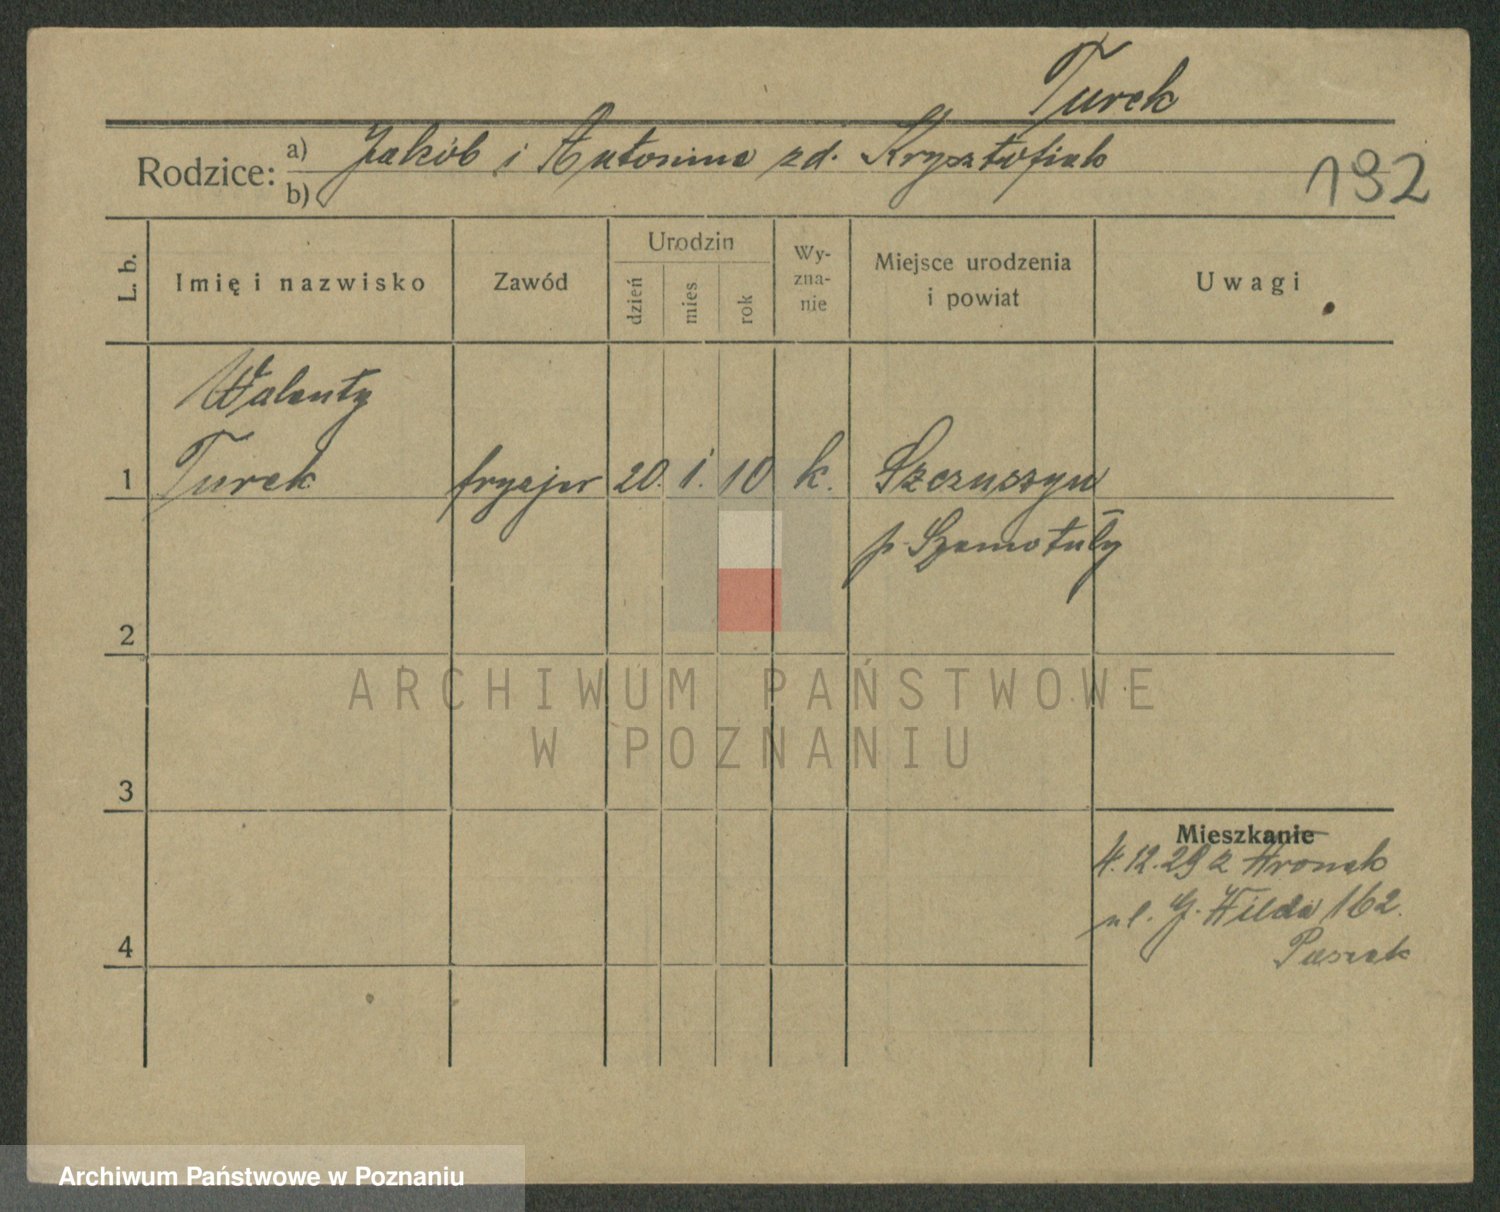 Turek
Rodzice: a) Jakób i Antonina zd. Krzysztofiak
b)
192
L. b.
Imię i nazwisko
Zawód
Urodzin
dzień
mies
rok
Wy-
zna-
nie
Miejsce urodzenia
i powiat
Uwagi
Walenty
1 Turek fryzjer 20. 1. 10 k. Szczuczyn
p. Szamotuły
2
3
4
Mieszkanie
4.12.29 z Wronek
ul. G. Wilda 162.
ARCHIWUM PAŃSTWOWE
W POZNANIU
Archiwum Państwowe w Poznaniu